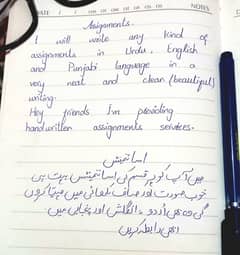 DATE
NOTES
Assignments.
I will write any kind of
assignments in Urdu, English
and Punjabi language in a
very neat and clean (beautiful)
writing.
Hey friends I'm providing
handwritten assignments services.
اسائمنٹس
میں آپ کو ہر قسم کی اسائمنٹس بہت ہی
خوبصورت اور صاف لکھائی میں مہیا کروں
گی وہ بھی اُردو، انگلش اور پنجابی میں
ابھی رابطہ کریں